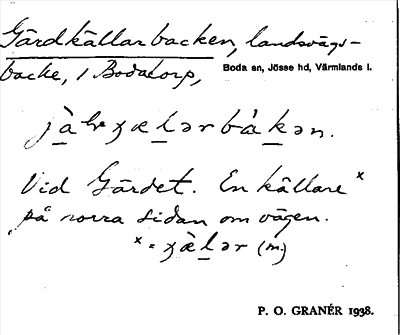 Gärdkällarbacken, landsvägs-
backe, i Bodatorp, Boda sn, Jösse hd, Värmlands l.
Vid Gärdet. En källare x
på norra sidan om vägen.
(m.)
P. O. GRANÉR 1938.